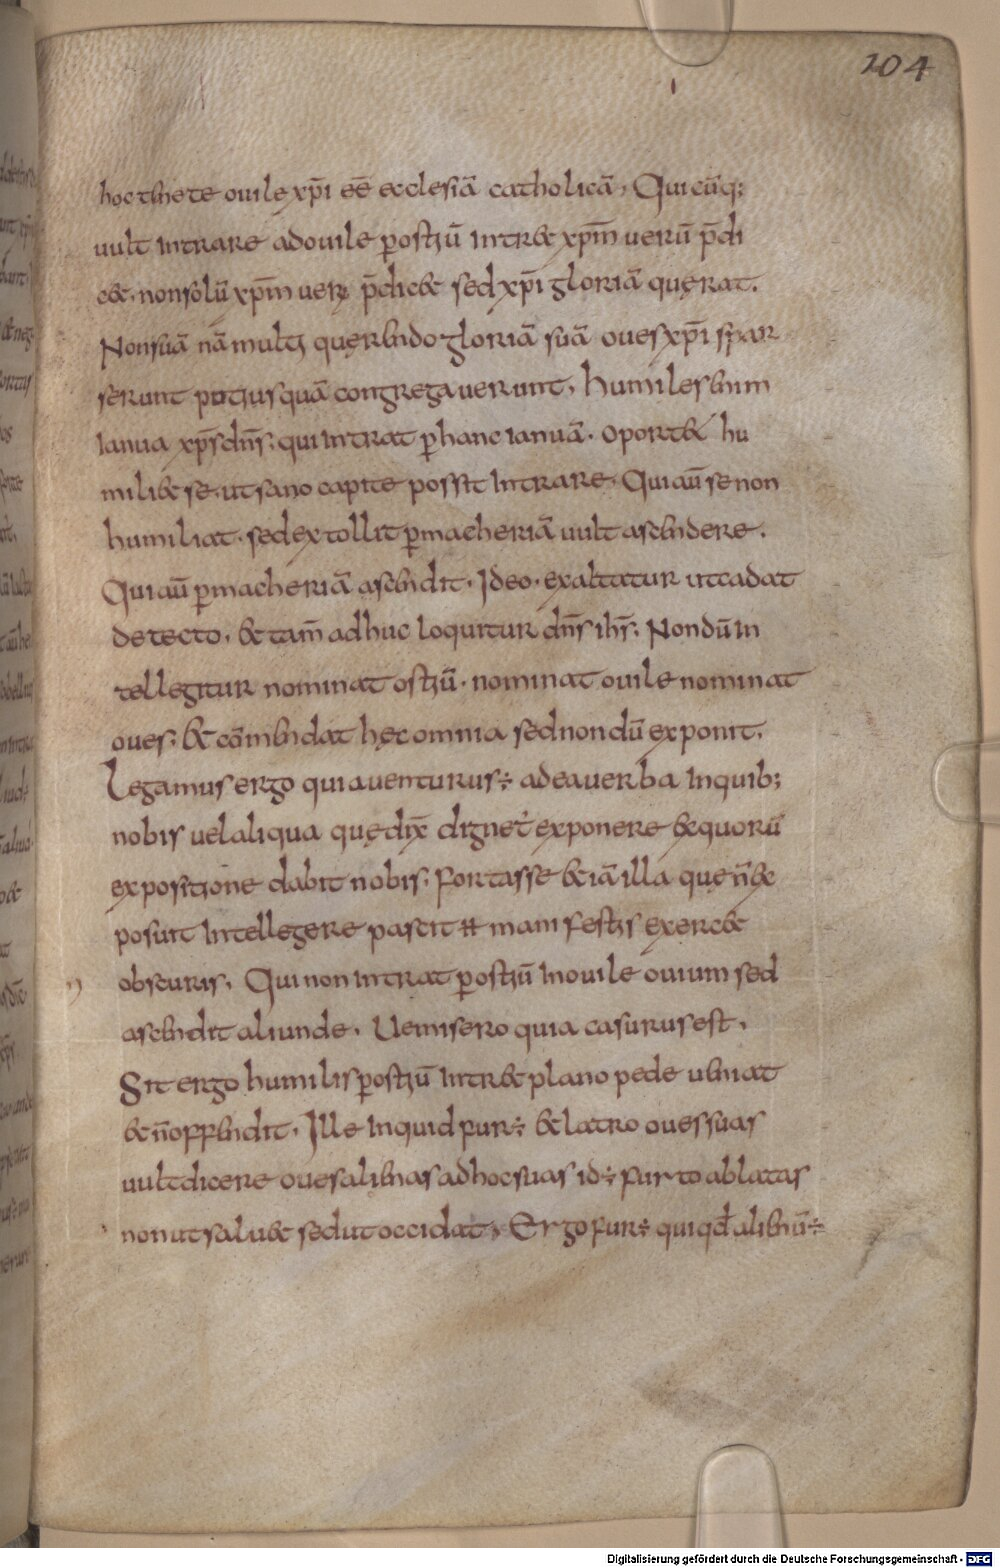 104
hoc tenete ouile xp̄i eē ecclesiā catholicā, Qui cūq;
uult intrare ad ouile p̄ ostiū intr& xp̄m uerū p̄di
c&. non solū xp̄m uerū p̄dic& sed xp̄i gloriā quęrat.
Non suā nā multi quęrendo gloriā suā oues xp̄i spar
serunt potius quā congregauerunt, humilis enim
ianua xp̄s dn̄s. qui intrat p̄ hanc ianuā. oport& hu
mili& se. ut sano capite possit intrare. Qui aū se non
humiliat. sed extollit p̄ macheriā uult ascendere.
Qui aū p̄ macheriā ascendit. Ideo. exaltatur ut cadat
de tecto. & tam̄ adhuc loquitur dn̄s ih̄s. Nondū in
tellegitur nominat ostiū. nominat ouile nominat
oues. & cōmendat hęc omnia sed nondū exponit.
Legamus ergo quia uenturus ÷ ad ea uerba in quib;
nobis uel aliqua quę dix̄ dignet̄ exponere & quorū
expositione dabit nobis. fortasse & iā illa quę n̄ &
posuit intellegere pascit manifestis exerc&
obscuris. Qui non intrat p̄ ostiū in ouile ouium sed
ascendit aliunde. Ue misero quia casurus est.
Sit ergo humilis p̄ ostiū intr& plano pede ueniat
& n̄ offendit. Ille inquid fur ÷ & latro oues suas
uult dicere oues alienas ad hoc suas id ÷ furto ablatas
non ut salu& sed ut occidat, Ergo fur ÷ qui qd̄ alienū ÷
Digitalisierung gefördert durch die Deutsche Forschungsgemeinschaft - DFG